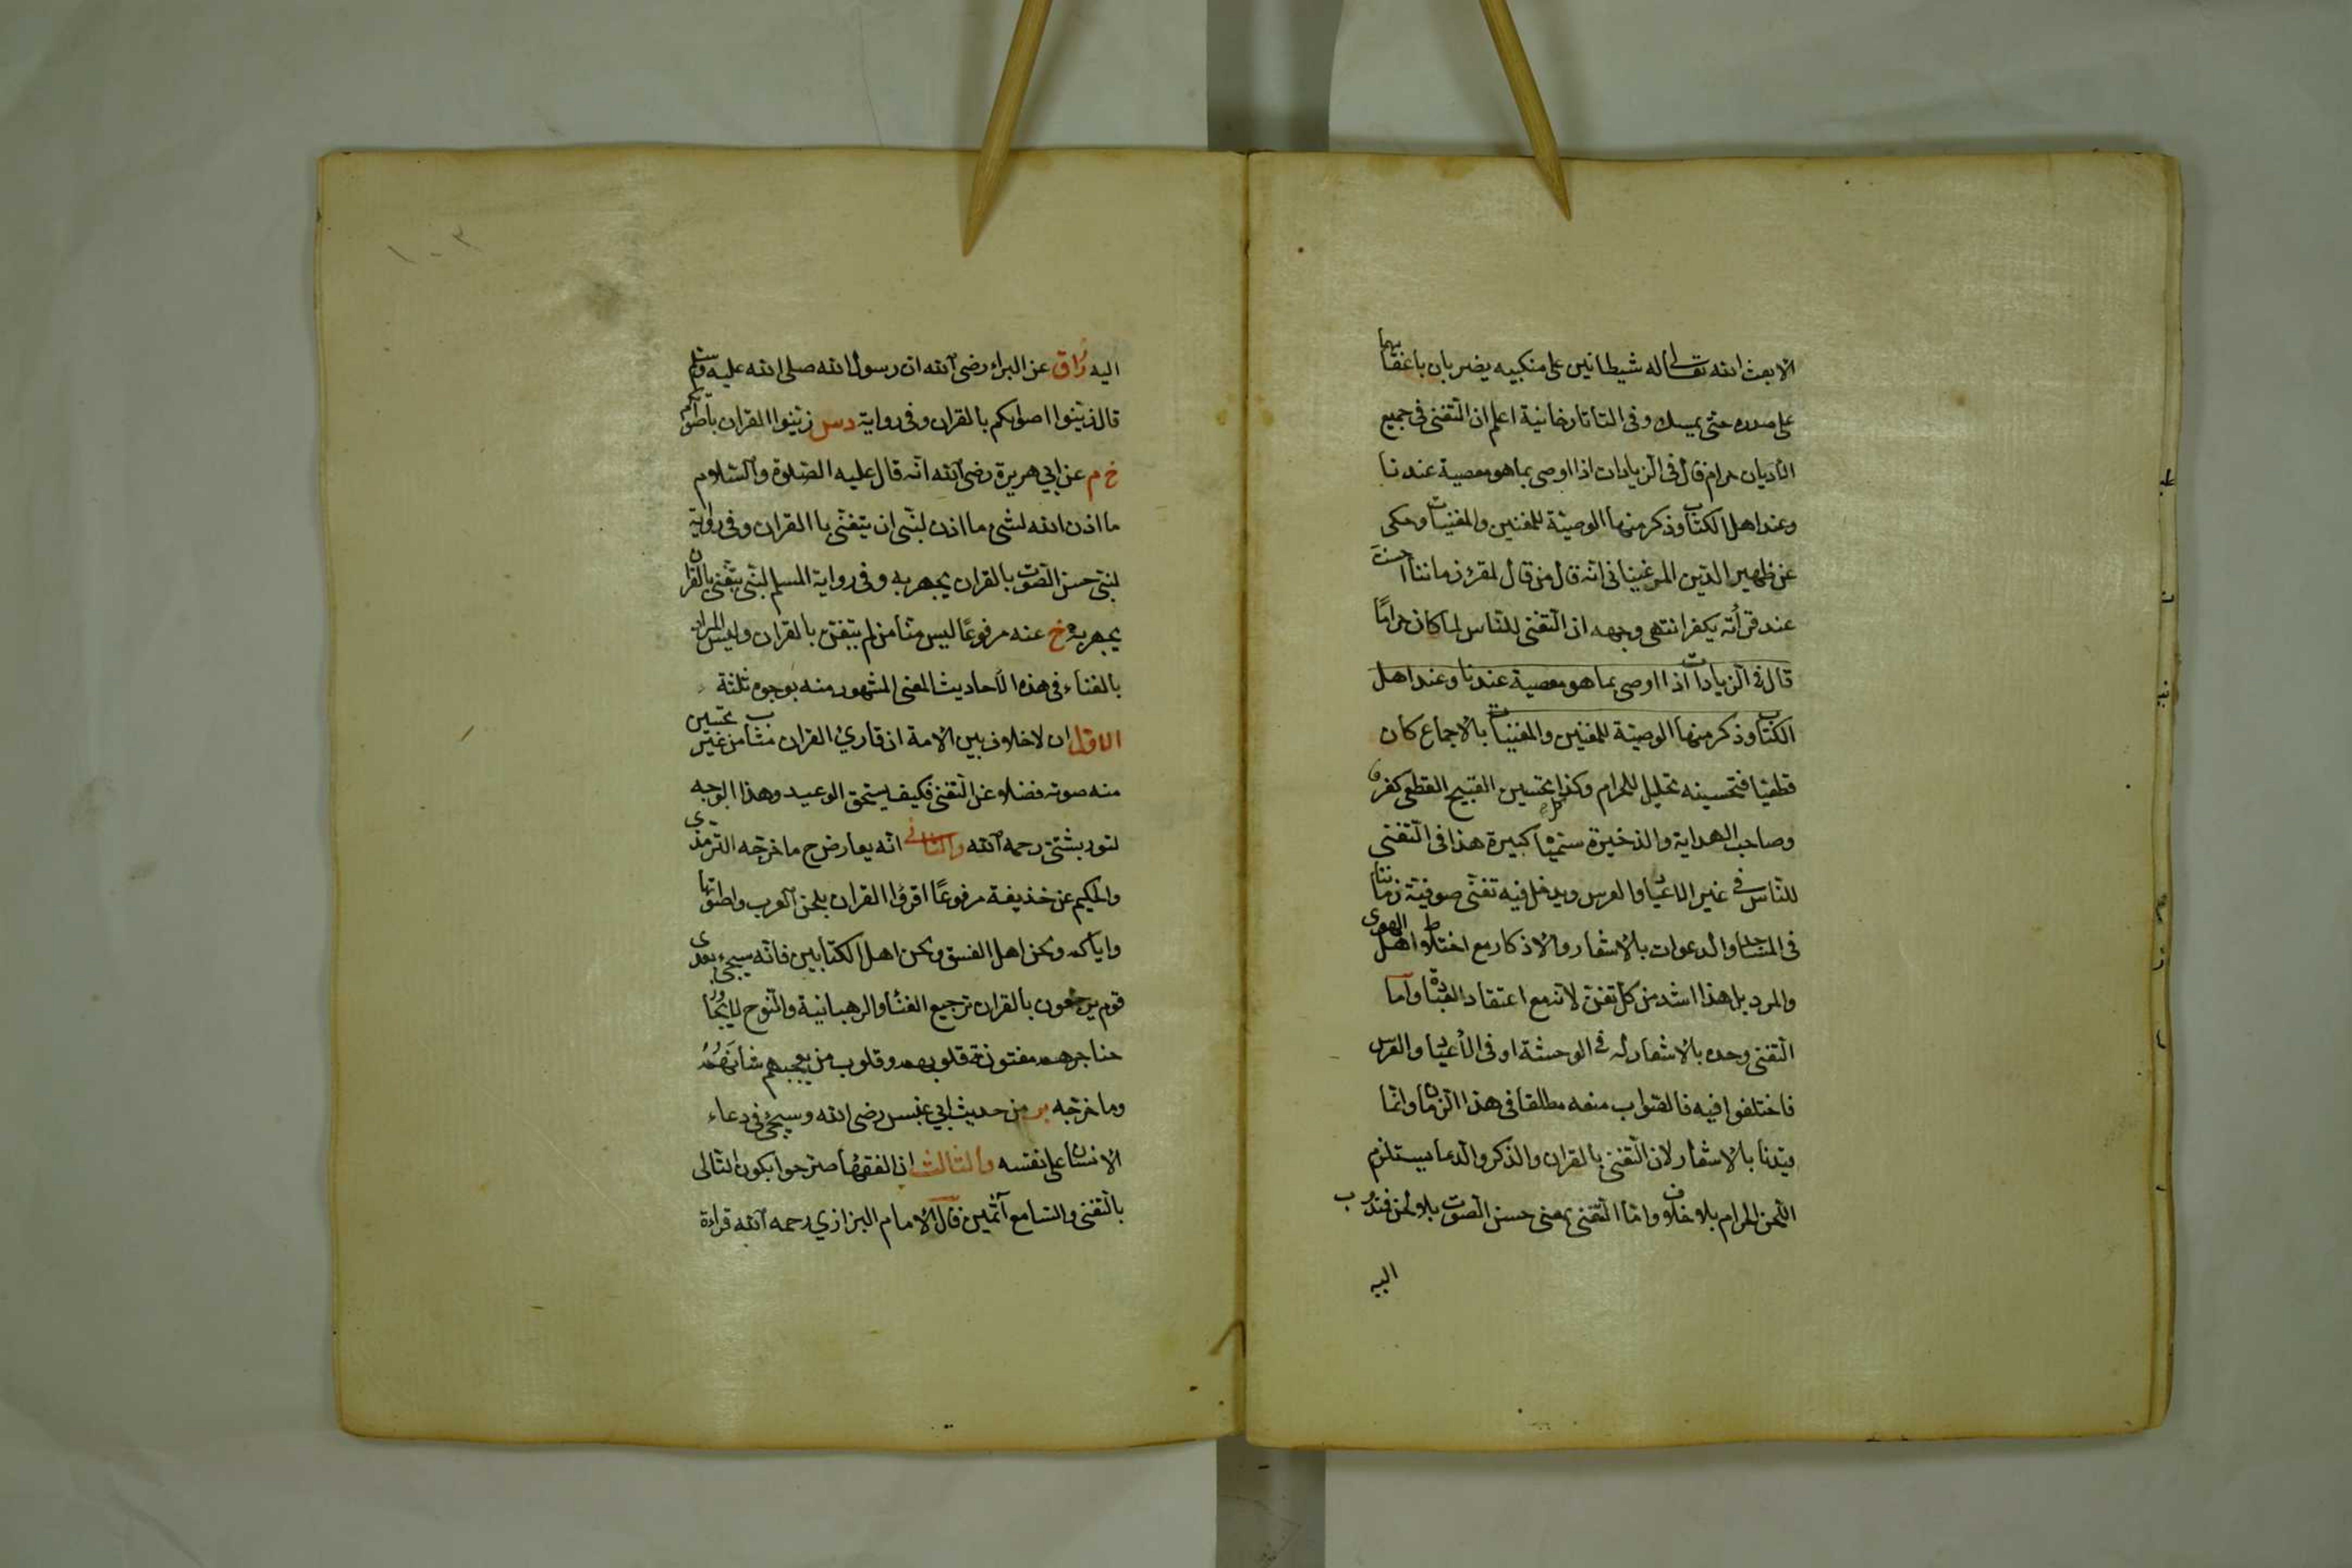 الا بعث الله تعالى له شيطانين على منكبيه يضربان باعقابهما
على صدره حتى يمسك وفى التاتارخانية اعلم ان التغنى فى جميع
الاديان حرام قال فى الزيادات اذا اوصى بما هو معصية عندنا
وعند اهل الكتاب وذكر منها الوصية للمغنين والمغنيات وحكى
عن ظهير الدين المرغينانى انه قال من قال لمقرئ زماننا احسنت
عند قرأته يكفر انتهى وجهه ان التغنى للناس لما كان حرامًا
قال فى الزيادات اذا اوصى بما هو معصية عندنا وعند اهل
الكتاب وذكر منها الوصية للمغنين والمغنيات بالاجماع كان
قطعيا فتحسينه تحليل للحرام وكذا تحسين القبيح القطعى كفر
وصاحب الهداية والذخيرة سمياه كبيرة هذا فى التغنى
للناس فى غير الاعياد والعرس ويدخل فيه تغنى صوفية زماننا
فى المساجد والدعوات بالاشعار والاذكار مع اختلاط اهل الهوى
والمرد بل هذا اشد من كل تغن لانه مع اعتقاد العبادة واما
التغنى وحده بالاشعار له فى الوحشة او فى الأعياد والعرس
فاختلفوا فيه فالصواب منعه مطلقا فى هذا الزمان وانما
قيدنا بالاشعار لان التغنى بالقران والذكر والدعا يستلزم
اللحن الحرام بلا خلاف واما التغنى بمعنى حسن الصوت بلا لحن فندوب
اليه
اليه زاق عن البراء رضى الله ان رسول الله صلى الله عليه وسلم
قال زينوا اصواتكم بالقران وفى رواية دس زينوا القران باصواتكم
خ م عن ابي هريرة رضى الله انه قال عليه الصلوة والسلام
ما اذن الله لشئ ما اذن لنبى ان يتغنى با القران وفى رواية
لنبى حسن الصوت بالقران يجهر به وفى رواية المسلم لنبى يتغنى بالقران
يجهر به خ عنه مرفوعًا ليس منا من لم يتغن بالقران وليس المراد
بالغناء فى هذه الأحاديث المعنى المشهور منه بوجوه ثلثة
الاول ان لا خلاف بين الامة ان قارئ القران مثاب من غير تحسين
منه صوته فضلا عن التغنى فكيف يستحق الوعيد وهذا الوجه
لتوربشتى رحمه الله والثانى انه يعارض ح ما خرجه الترمذى
والحكيم عن حذيفة مرفوعًا اقرؤا القران بلحن العرب واصواتها
واياكم ولحن اهل الفسق ولحن اهل الكتابين فانه سيجئ بعدى
قوم يرجعون بالقران ترجيع الغناء والرهبانية والنوح لا يجاوز
حناجرهم مفتونة قلوبهم وقلوب من يعجبهم شأنَهُمُ
وما خرجه بر من حديث ابي عبس رضى الله وسيجئ فى دعاء
الانسان على نفسه والثالث ان الفقهاء صرحوا بكون التالى
بالتغنى والسامع آثمين قال الامام البزازي رحمه الله قراءة